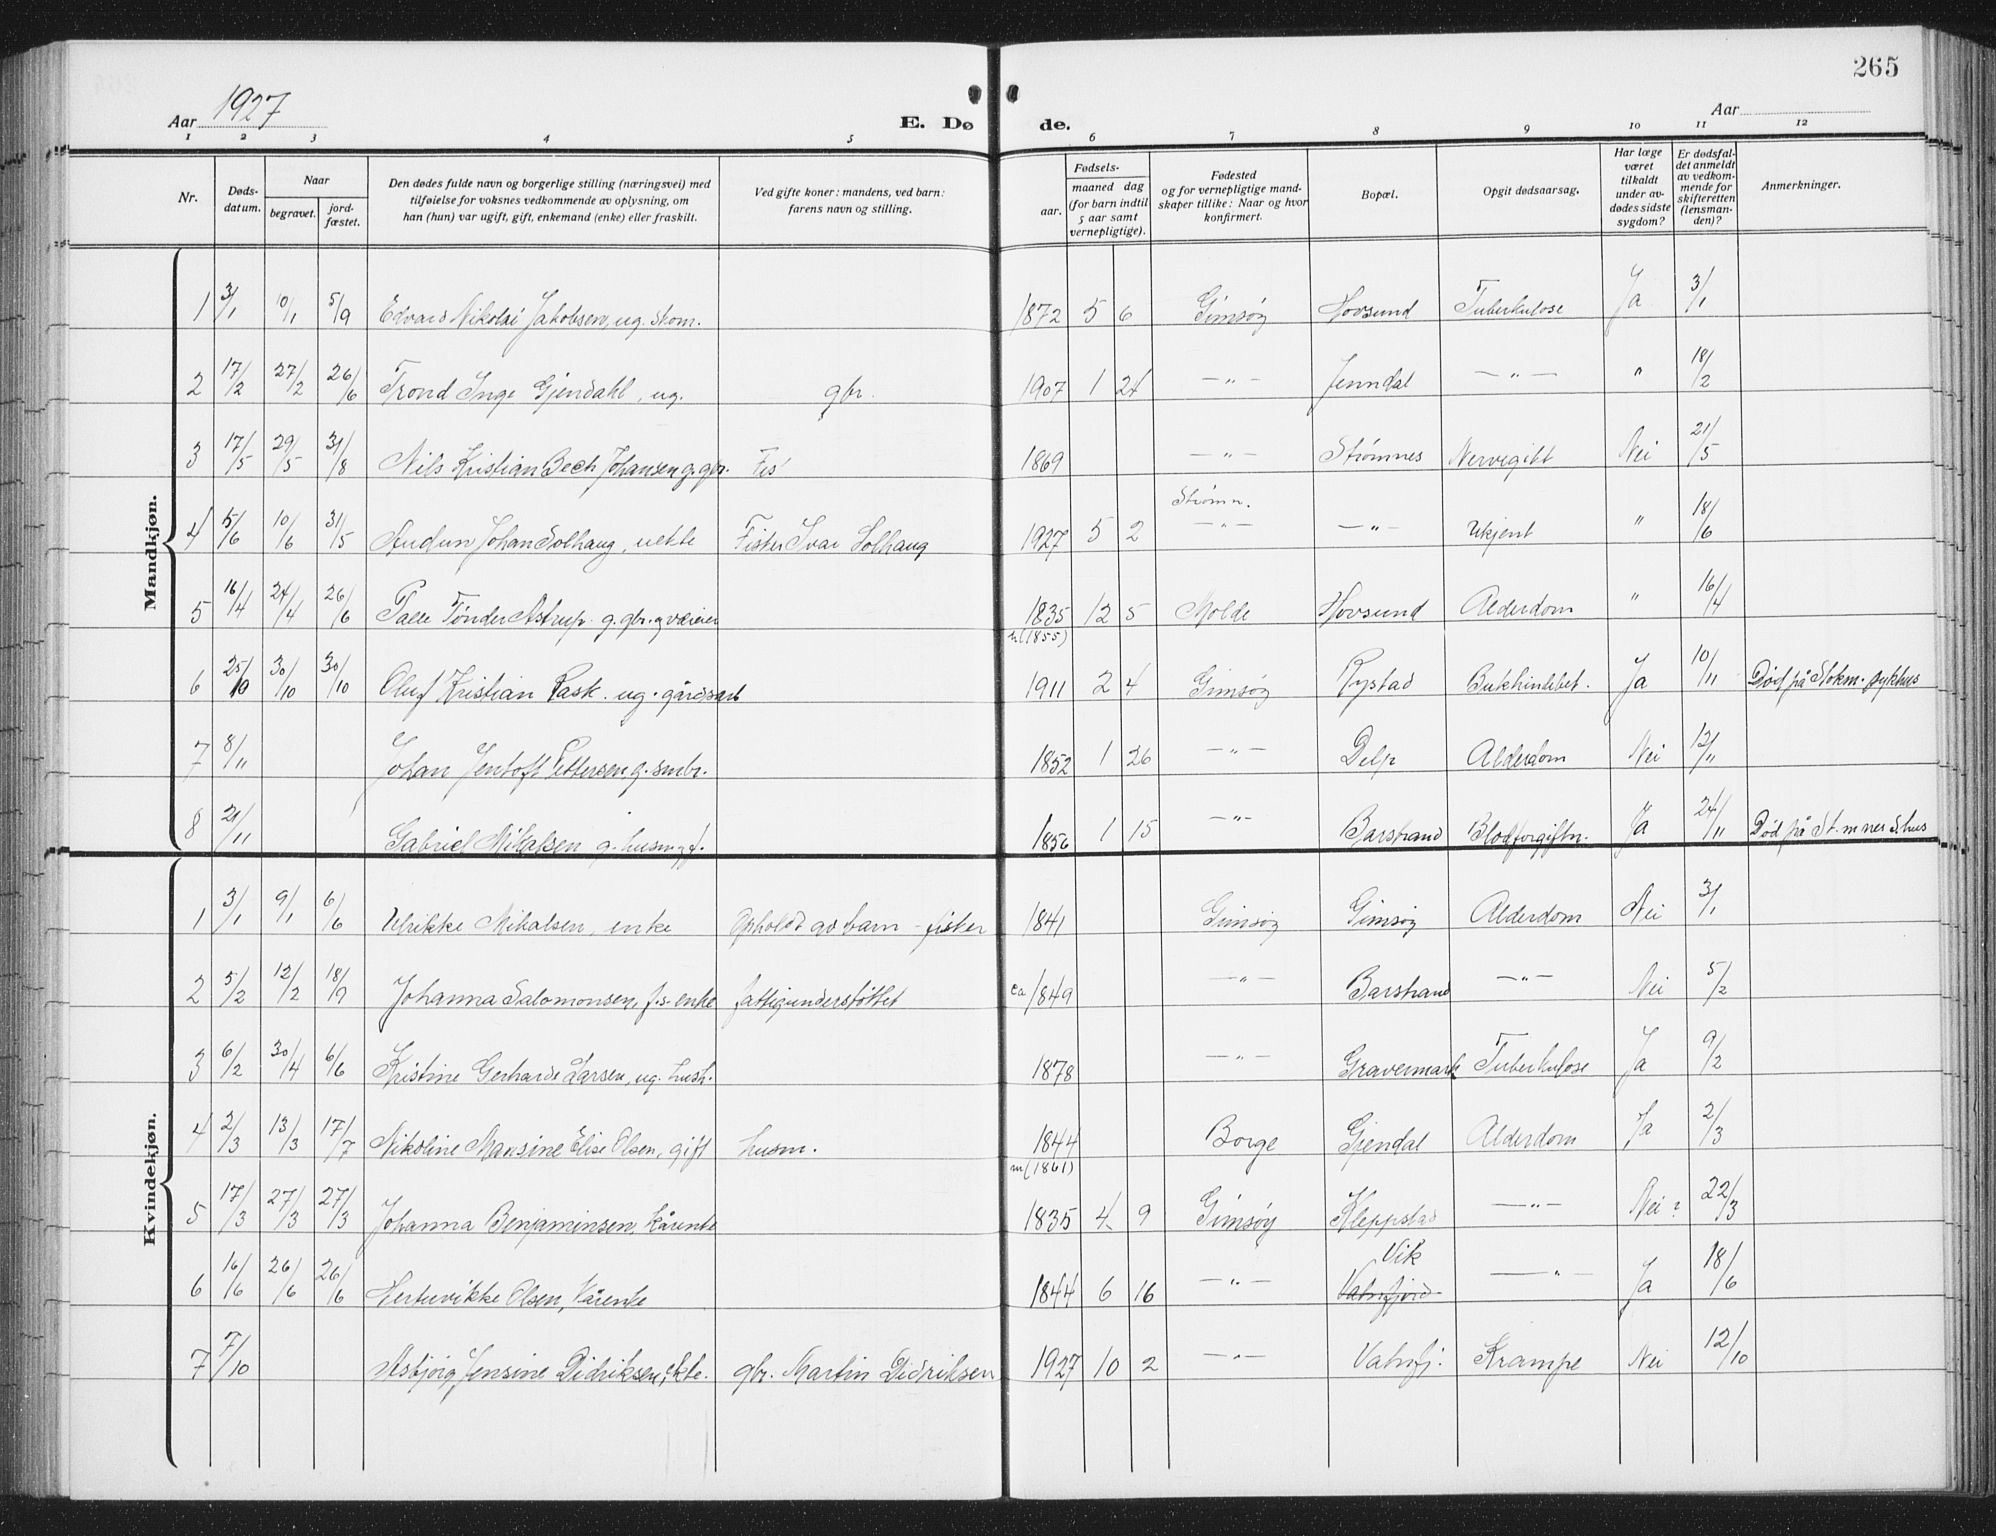 265
Aar 1927
E. Dø de.
Aar
1 2 3 4 5 6 7 8 9 10 11 12
Nr.
Døds-
datum.
Naar
begravet.
jord-
fæstet.
Den dødes fulde navn og borgerlige stilling (næringsvei) med
tilføielse for voksnes vedkommende av oplysning, om
han (hun) var ugift, gift, enkemand (enke) eller fraskilt.
Ved gifte koner: mandens, ved barn:
farens navn og stilling.
Fødsels-
aar.
maaned dag
(for barn indtil
5 aar samt
vernepligtige).
Fødested
og for vernepligtige mand-
skaper tillike: Naar og hvor
konfirmert.
Bopæl.
Opgit dødsaarsag.
Har læge
været
tilkaldt
under av-
dødes sidste
sygdom?
Er dødsfal-
det anmeldt
av vedkom-
mende for
skifteretten
(lensman-
den)?
Anmerkninger.
Mandkjøn.
1 3/1 10/1 5/9 Edvard Nikolai Jakobsen, ug. skom. 1872 5 6 Gimsøy Hovsund Tuberkulose Ja 3/1
2 17/2 27/2 26/6 Trond Inge Gjendahl, ug. gbr. 1907 1 24 —"— Jenndal —"— " 18/2
3 17/5 29/5 31/8 Nils Kristian Bech Johansen g. gbr. Fis 1869 —"— Strømnes Nervegikt Nei 21/5
4 5/6 10/6 31/5 Audun Johan Solhaug, uekte Fisker Ivar Solhaug 1927 5 2 Strømn. —"— —"— Ukjent " 18/6
5 16/4 24/4 26/6 Palle Tønder Astrup. g. gbr. g væreier 1835 12 5 Molde Hovsund Alderdom " 16/4
(1855)
6 25/10 30/10 30/10 Oluf Kristian Rask. ug. gårdsarb 1911 2 4 Gimsøy Rystad Bukhindebet. Ja 10/11 Død på Stokm. sykhus
7 8/11 Johan Jentoft Pettersen g. smbr. 1852 1 26 —"— Delp Alderdom Nei 12/11
8 21/11 Gabriel Mikalsen g. husm. 1856 1 15 —"— Barstrand Blodforgiftn. Ja 24/11 Død på St.mnes S.hus
Kvindekjøn.
1 3/1 9/1 6/6 Ulrikke Mikalsen, enke Opholdt av barn - fisker 1841 Gimsøy Gimsøy Alderdom Nei 3/1
2 5/2 12/2 18/9 Johanna Salomonsen, f.s. enke fattigunderstøttet ca 1849 —"— Barstrand —"— Nei 5/2
3 6/2 30/4 6/6 Kristine Gerharde Larsen, ug. hush. 1878 —"— Gravermark Tuberkulose Ja 9/2
4 2/3 13/3 17/7 Nikoline Mansine Elise Olsen, gift husm. 1844 Borge Gjendal Alderdom Ja 2/3
m (1861)
5 17/3 27/3 27/3 Johanna Benjaminsen, kårenke 1835 4 9 Gimsøy Kleppstad —"— Nei? 22/3
6 16/6 26/6 26/6 Hertuvikke Olsen, kårenke 1844 6 16 —"— Vik Vatnfjord —"— Ja 18/6
7 7/10 Asbjørg Jensine Didriksen, ekte. gbr. Martin Didriksen 1927 10 2 —"— Vatnfj. Krampe Nei 12/10